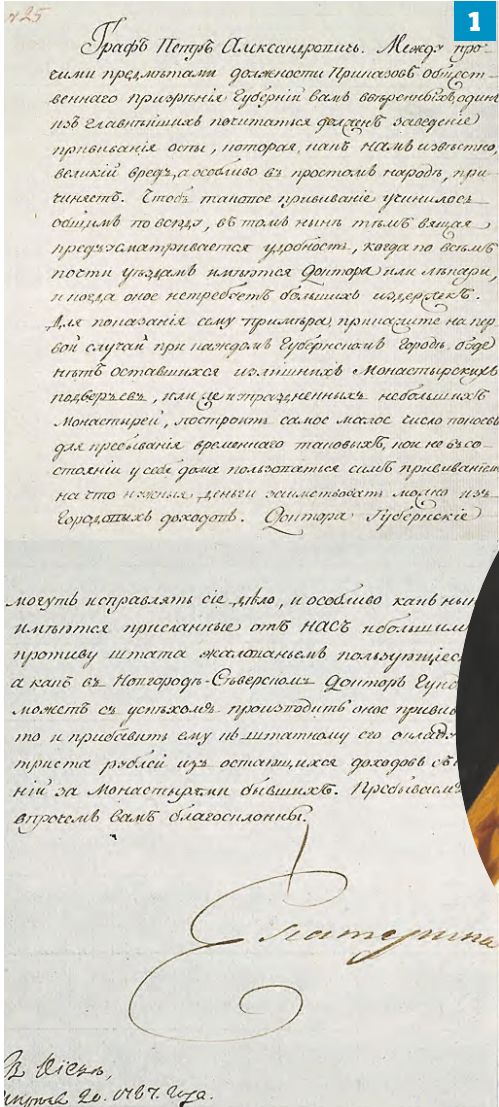 №25
1
Графъ Петръ Александровичь. Между про-
чими предмѣтами должности Приказовъ общест-
веннаго призрѣнія Губерній вамъ ввѣренныхъ, одинъ
изъ главнѣйшихъ почитаться долженъ заведеніе
прививанія оспы, которая, какъ намъ извѣстно,
великій вредъ, а особливо въ простомъ народѣ, при-
чиняетъ. Чтобъ таковое прививаніе учинилось
общимъ повсюду, въ томъ нынѣ тѣмъ вящая
предъусматривается удобность, когда по всѣмъ
почти уѣздамъ имѣются Доктора или лѣкари,
и когда оное нетребуетъ большихъ издержекъ.
Для показанія сему примѣра, прикажите на пер
вой случай при каждомъ Губернскомъ Городѣ, буде
нѣтъ оставшихся излишнихъ Монастырскихъ
подворьевъ, или изпраздненныхъ небольшихъ
Монастырей, построить самое малое число покоевъ
для пребыванія временнаго таковыхъ, кои не въ со-
стояніи у себя дома пользоваться симъ прививаніемъ
на что нужныя деньги заимствовать можно изъ
Городовыхъ доходовъ. Доктора Губернскіе
могутъ исправлять сіе дѣло, и особливо какъ нын
имѣются присланные отъ НАСЪ небольшимъ
противу штата жалованьемъ пользующіес
а какъ въ Новгородѣ-Сѣверскомъ Докторъ Гун
можетъ съ успѣхомъ производить оное привив
то и прибавить ему къ штатному его оклад
триста рублей изъ остающихся доходовъ съ
ній за Монастырями бывшихъ. Пребываемъ
впрочемъ вамъ благосклонны.
Екатерина
В Кіевѣ,
апреля 20. 1787. года.